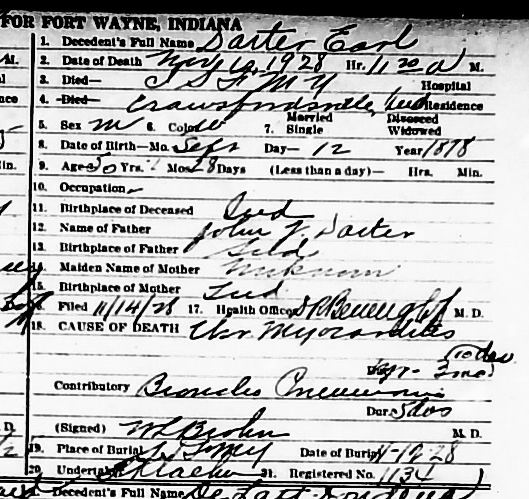 FOR FORT WAYNE, INDIANA
1. Decedent's Full Name Darter Earl
2. Date of Death Nov 10, 1928 Hr. 11 20 a M.
3. Died— I S F M Y Hospital
4. Died— Crawfordsville, Ind Residence
5. Sex M 6. Color W 7. Married Single Divorced Widowed
8. Date of Birth—Mo. Sept Day— 12 Year 1878
9. Age 50 Yrs. 1 Mos. 28 Days (Less than a day)— Hrs. Min.
10. Occupation
11. Birthplace of Deceased Ind
12. Name of Father John Darter
13. Birthplace of Father Ind
14. Maiden Name of Mother Unknown
15. Birthplace of Mother Ind
16. Filed 11/14/28 17. Health Officer M. D.
18. CAUSE OF DEATH Chr Myocarditis
Dur. yr- 3 mo 10 das
Contributory Broncho Pneumonia
Dur. 5 das
(Signed) M. D.
19. Place of Burial Date of Burial -28
20. Undertaker 21. Registered No. 1134
Decedent's Full Name